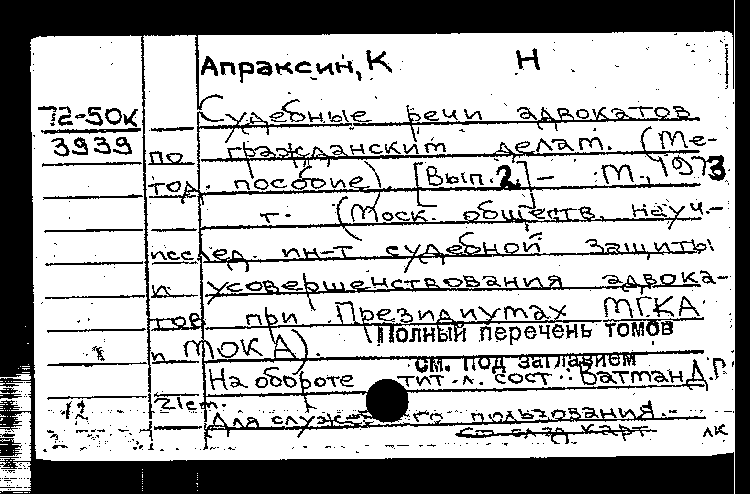 Апраксин, К Н
72-50к Судебные речи адвокатов
3939 по гражданским делам. (Ме-
тод. пособие) [Вып. 2] – М., 1973
т. (Моск. обществ. науч.-
исслед. ин-т судебной защиты
и усовершенствования адвока-
тов при Президиумах МГКА
и МОКА). Полный перечень томов
см. под заглавием
На обороте тит. л. сост.: Ватман Д.П
12 21см.
Для служебного пользования.-
карт ЛК